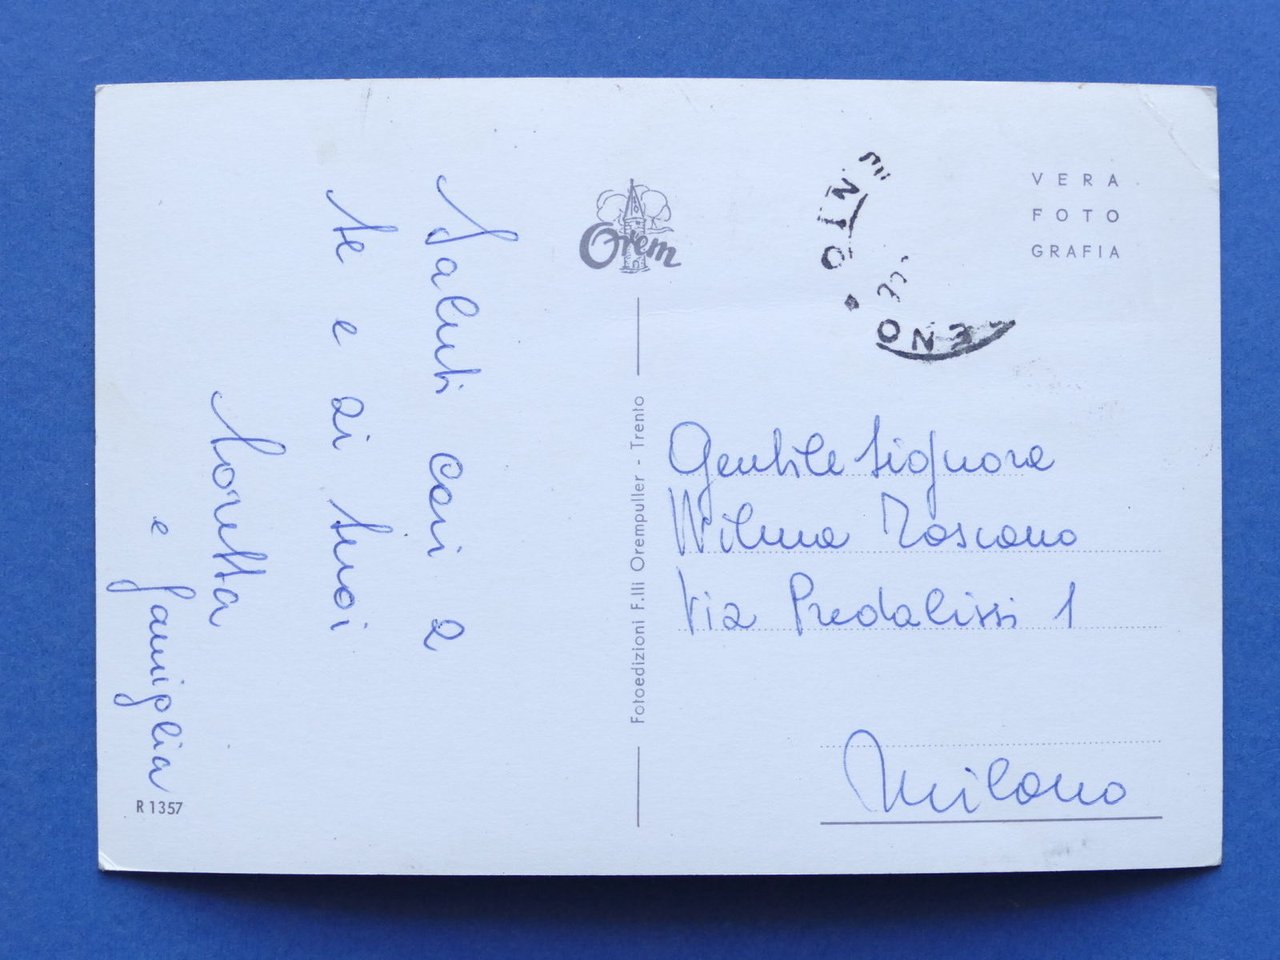 Saluti cari a
te e ai tuoi
Loretta
e famiglia
R 1357
Orem
Fotoedizioni F.lli Orempuller - Trento
VERA
FOTO
GRAFIA
Gentile Signora
Wilma Toscano
Via Predalissi 1
Milano